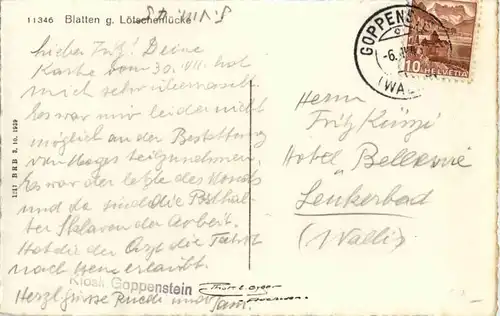 11346 Blatten g. Lötschenlücke
Lieber Fritz! Deine
Karte vom 30. VII. hat
mich sehr überrascht.
Es war mir leider nicht
möglich an der Bestattung
von teilzunehmen.
Es war der letzte des Monats
und da sind die Posthal-
ter Sklaven der Arbeit.
Hat dir der Arzt die Fahrt
nach erlaubt.
Herzl grüsse Ruedi und Fam.
Kiosk Goppenstein
GOPPENS
-6.
(WAL
10 HELVETIA
Herrn
Fritz Künzi
Hotel "Bellevue
Leukerbad
(Wallis)
BRB 3. 10. 1939